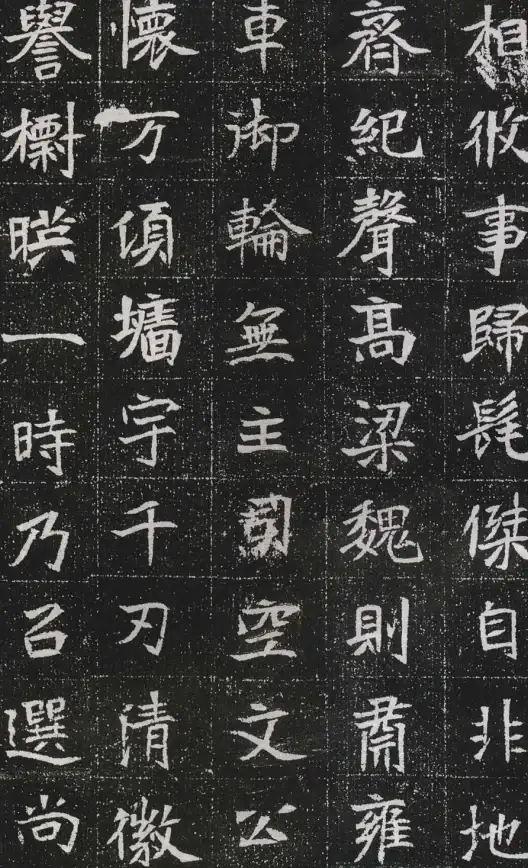 相攸事歸髦傑自非地
齊紀聲高梁魏則肅雍
車御輪無主空文公
懷万頃墻宇千刃清徽
譽暎一時乃召選尚